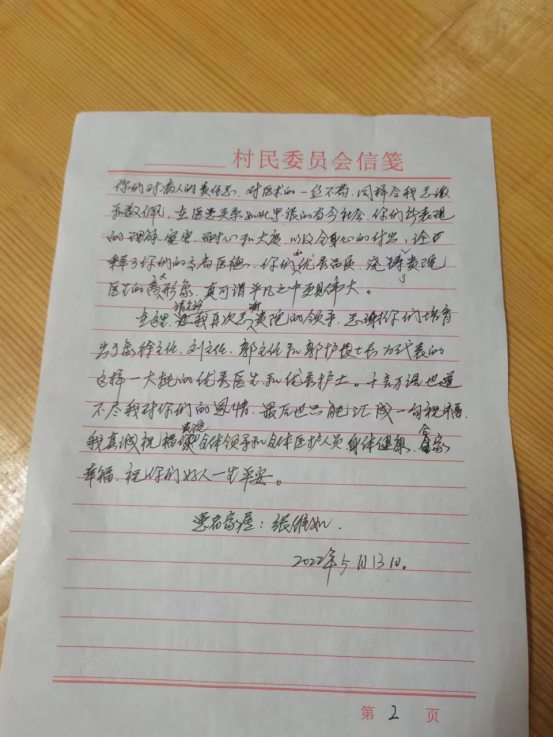 村民委员会信笺
你们对病人的责任感，对医术的一丝不苟，同样令我感激
和敬佩。在医患关系如此紧张的当今社会，你们所表现
的理解、宽容、耐心和大度，以及全身心的付出，诠
释了你们的高尚医德，你们的优秀品质，浇铸了贵院
医生的高大形象，真可谓平凡之中更显伟大。
在这里，请允许我再次感谢贵院的领导，感谢你们培育
出了以徐主任、刘主任、郭主任和郭护士长为代表的
这样一大批的优秀医生和优秀护士。千言万语也道
不尽我对你们的恩情，最后也只能汇成一句祝福，
我真诚祝福贵院全体领导和全体医护人员身体健康，全家
幸福，祝你们好人一生平安。
患者家属：张
2022年5月13日。
第 2 页